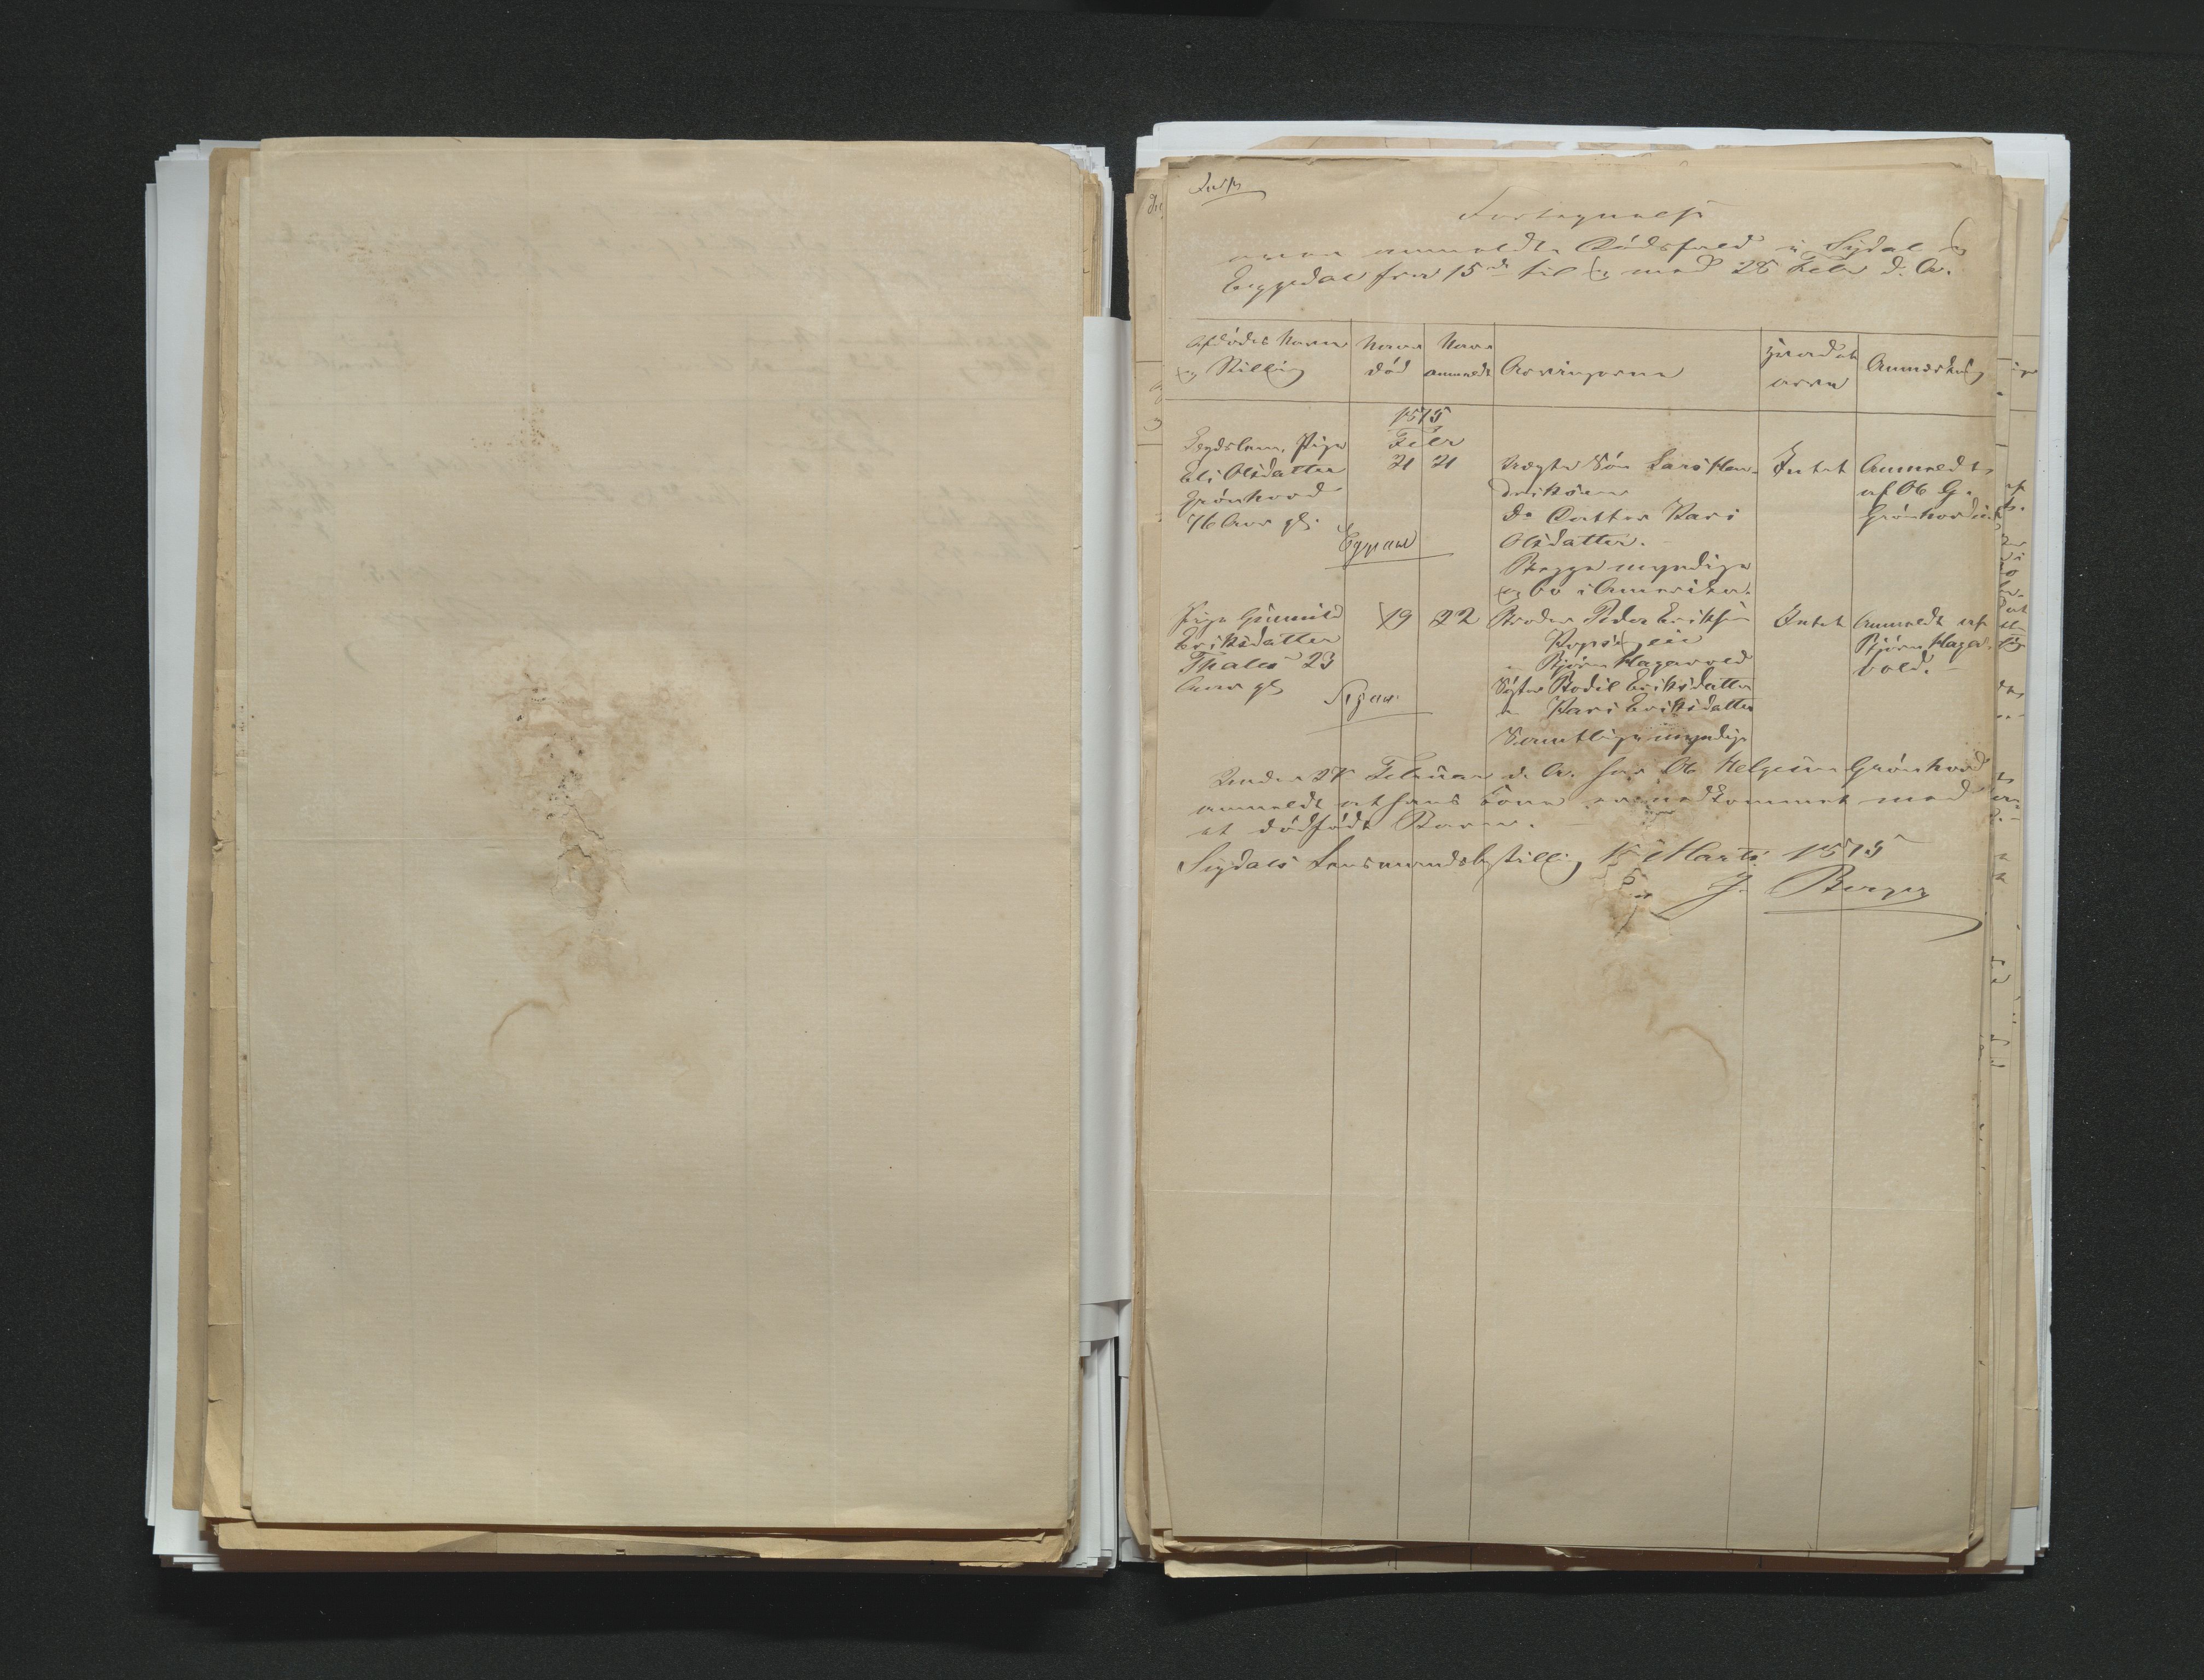 Fortegnelse
over anmeldte Dødsfald i Sigdal og
Eggedal fra 15de til og med 28 Febr d. A.
Afdødes Navn
og Stilling
Naar
død
Naar
anmeldt
Arvingerne
Anmærkning
1875
Febr
Legdslem, Pige
Eli Olsdatter
Grønhovd
76 Aar gl.
Eggedal
21 21
uægte Søn Lars Hen-
driksen
do Datter Kari
Olsdatter.
Begge myndige
og bo i Amerika.
Intet
Anmeldt
af Ole H.
Grønhovd
Pige Gunnild
Eriksdatter
23
Aar gl
19 22
Broder Peder Eriksen
Bjørn Hagavold
Søster Bodil Eriksdatter
" Kari Eriksdatter
Samtlige myndige
Intet
Anmeldt af
Bjørn Haga-
vold.
Under Februar d. A. har Ole Helgesen Grønhovd
anmeldt at hans Kone er nedkommet med
et dødfødt Barn.
Sigdals Lensmandsbestilling 1 Marts 1875
Berger